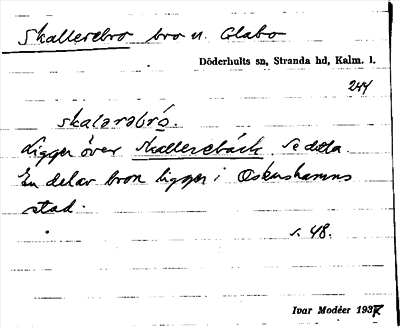 Skallerebro bro u. Glabo
Döderhults sn, Stranda hd, Kalm. l.
244
skalərəbró.
Ligger över Skallerebäck. Se detta
En del av bron ligger i Oskarshamns
stad.
s. 48.
Ivar Modéer 1937